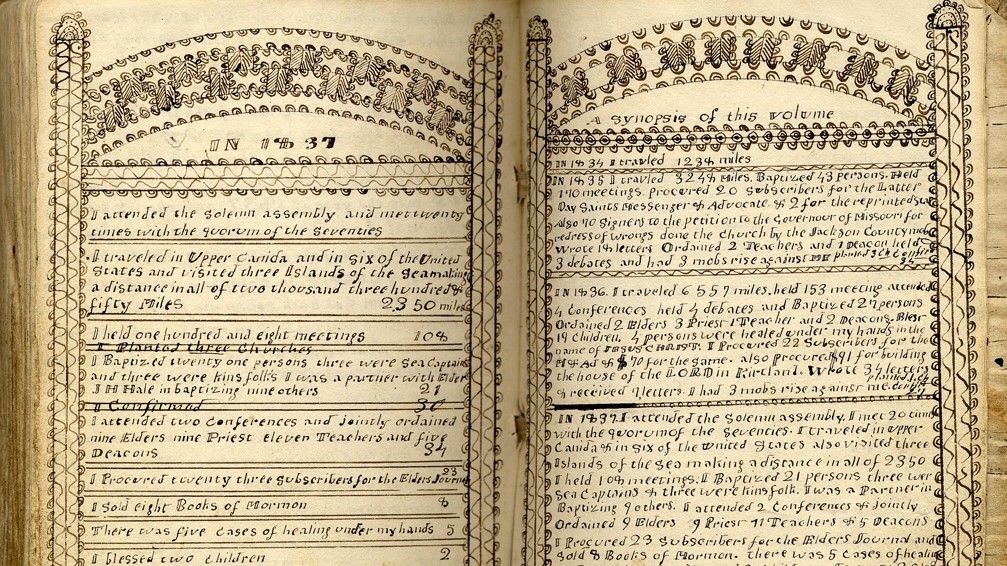 IN 1837
I attended the Solemn assembly and met twenty
times with the quorum of the Seventies
I traveled in Upper Canida and in six of the United
States and visited three Islands of the Sea making
a distance in all of two thousand three hundred &
fifty Miles 2350 miles
I held one hundred and eight meetings 108
I Planted three Churches
I Baptized twenty one persons three were Sea Captains
and three were kinsfolks I was a partner with Elder
J H Hale in baptizing nine others 21
I Confirmed 30
I attended two Conferences and Jointly ordained
nine Elders nine Priest eleven Teachers and five
Deacons 34
I Procured twenty three subscribers for the Elders Journal 23
I Sold eight Books of Mormon 8
There was five Cases of healing under my hands 5
I blessed two children 2
A synopsis of this volume
IN 1834 I travled 1238 miles
IN 1835 I travled 3248 Miles. Baptized 43 persons. Held
170 meetings. procured 20 Subscribers for the Latter
Day Saints Messenger & Advocate & 2 for the reprinted
Also 70 Signers to the petition to the Governour of Missouri for
redress of wrongs done the Church by the Jackson County mob
Wrote 18 letters Ordained 2 Teachers and 1 Deacon held
3 debates and had 3 mobs rise against me planted 3 Ch
IN 1836. I traveled 6557 miles. held 153 meeting attended
4 Conferences held 4 debates and Baptized 27 persons
Ordained 2 Elders 3 Priest 1 Teacher and 2 Deacons. Blest
19 Children, 4 persons were healed under my hands in the
name of JESUS CHRIST. I Procured 22 Subscribers for the
M & Ad & $70 for the same. also Procured $91 for building
the house of the LORD in Kirtland. Wrote 37 letters
& received 7 letters. I had 3 mobs rise against me.
IN 1837. I attended the Solemn assembly. I met 20 times
with the quorum of the Seventies. I traveled in upper
Canida & in six of the United States also visited three
Islands of the sea making a distance in all of 2350
I held 108 meetings. I Baptized 21 persons three wer
Sea Captains & three were kinsfolk. I was a Partner in
Baptizing 9 others. I attended 2 Conferences & Jointly
Ordained 9 Elders 9 Priest 11 Teachers & 5 Deacons
I Procured 23 Subscribers for the Elders Journal and
Sold 8 Books of Mormon. There was 5 Cases of healing